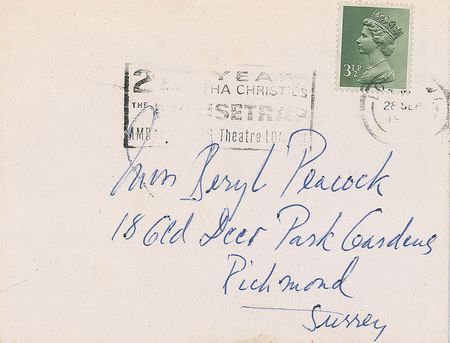 2 YEAR
AGATHA CHRISTIE'S
THE MOUSETRAP
Theatre
3½P
28 SEP
19
Miss Beryl Peacock
18 Old Deer Park Gardens
Richmond
Surrey